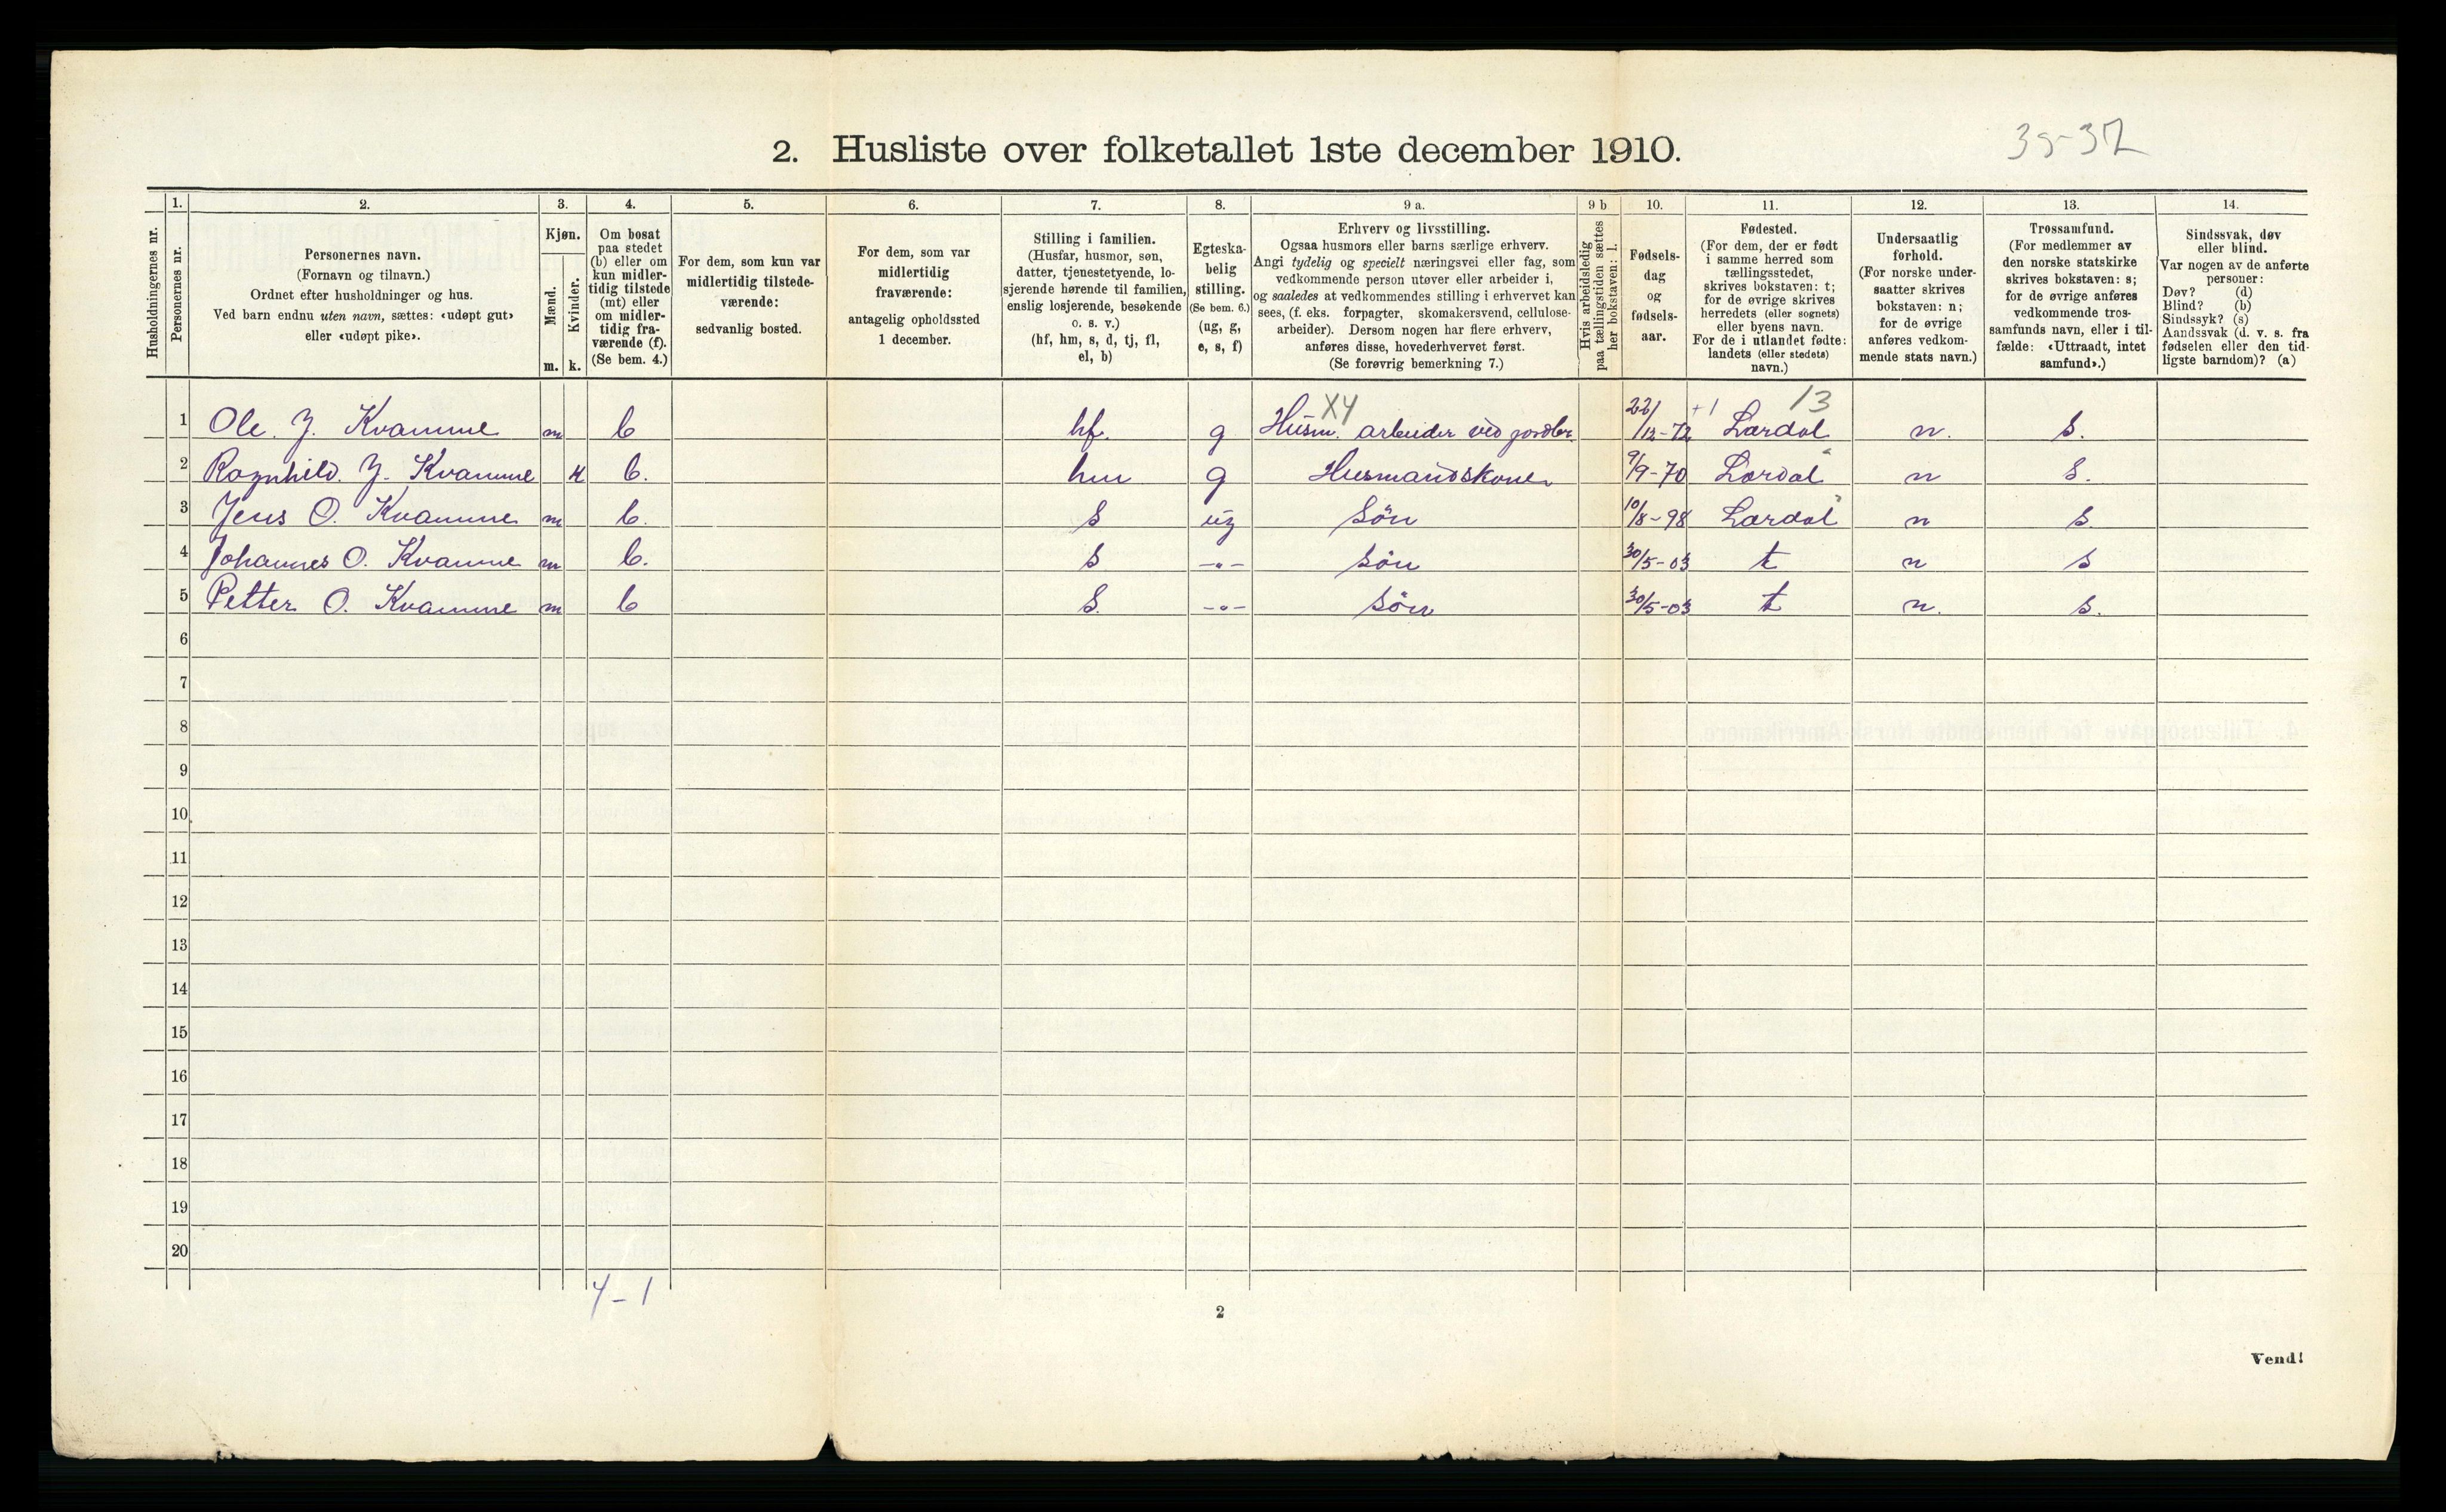 2. Husliste over folketallet 1ste december 1910.
35-37
1. 2. 3. 4. 5. 6. 7. 8. 9 a. 9 b 10. 11. 12. 13. 14.
Husholdningernes nr.
Personernes nr.
Personernes navn.
(Fornavn og tilnavn.)
Ordnet efter husholdninger og hus.
Ved barn endnu uten navn, sættes: «udøpt gut»
eller «udøpt pike».
Kjøn.
Mænd.
Kvinder.
m. k.
Om bosat
paa stedet
(b) eller om
kun midler-
tidig tilstede
(mt) eller
om midler-
tidig fra-
værende (f).
(Se bem. 4.)
For dem, som kun var
midlertidig tilstede-
værende:
sedvanlig bosted.
For dem, som var
midlertidig
fraværende:
antagelig opholdssted
1 december.
Stilling i familien.
(Husfar, husmor, søn,
datter, tjenestetyende, lo-
sjerende hørende til familien,
enslig losjerende, besøkende
o. s. v.)
(hf, hm, s, d, tj, fl,
el, b)
Egteska-
belig
stilling.
(Se bem. 6.)
(ug, g,
e, s, f)
Erhverv og livsstilling.
Ogsaa husmors eller barns særlige erhverv.
Angi tydelig og specielt næringsvei eller fag, som
vedkommende person utøver eller arbeider i,
og saaledes at vedkommendes stilling i erhvervet kan
sees, (f. eks. forpagter, skomakersvend, cellulose-
arbeider). Dersom nogen har flere erhverv,
anføres disse, hovederhvervet først.
(Se forøvrig bemerkning 7.)
Hvis arbeidsledig
paa tællingstiden sættes
her bokstaven: l.
Fødsels-
dag
og
fødsels-
aar.
Fødested.
(For dem, der er født
i samme herred som
tællingsstedet,
skrives bokstaven: t;
for de øvrige skrives
herredets (eller sognets)
eller byens navn.
For de i utlandet fødte:
landets (eller stedets)
navn.)
Undersaatlig
forhold.
(For norske under-
saatter skrives
bokstaven: n;
for de øvrige
anføres vedkom-
mende stats navn.)
Trossamfund.
(For medlemmer av
den norske statskirke
skrives bokstaven: s;
for de øvrige anføres
vedkommende tros-
samfunds navn, eller i til-
fælde: «Uttraadt, intet
samfund».)
Sindssvak, døv
eller blind.
Var nogen av de anførte
personer:
Døv? (d)
Blind? (b)
Sindssyk? (s)
Aandssvak (d. v. s. fra
fødselen eller den tid-
ligste barndom)? (a)
X4 +1 13
1 Ole. J. Kvamme m b hf. g Husm. arbeider ved jordbr. 22/12-72 Lærdal n. s.
2 Ragnhild. J. Kvamme k b. hm g Husmandskone 9/9-70 Lærdal n s.
3 Jens O. Kvamme m b. s ug Søn 10/8-98 Lærdal n s.
4 Johannes O. Kvamme m b. s -"- Søn 30/5-03 t n s
5 Petter O. Kvamme m b s. -"- Søn 30/5-03 t n. s.
6
7
8
9
10
11
12
13
14
15
16
17
18
19
20
4-1
2
Vend!